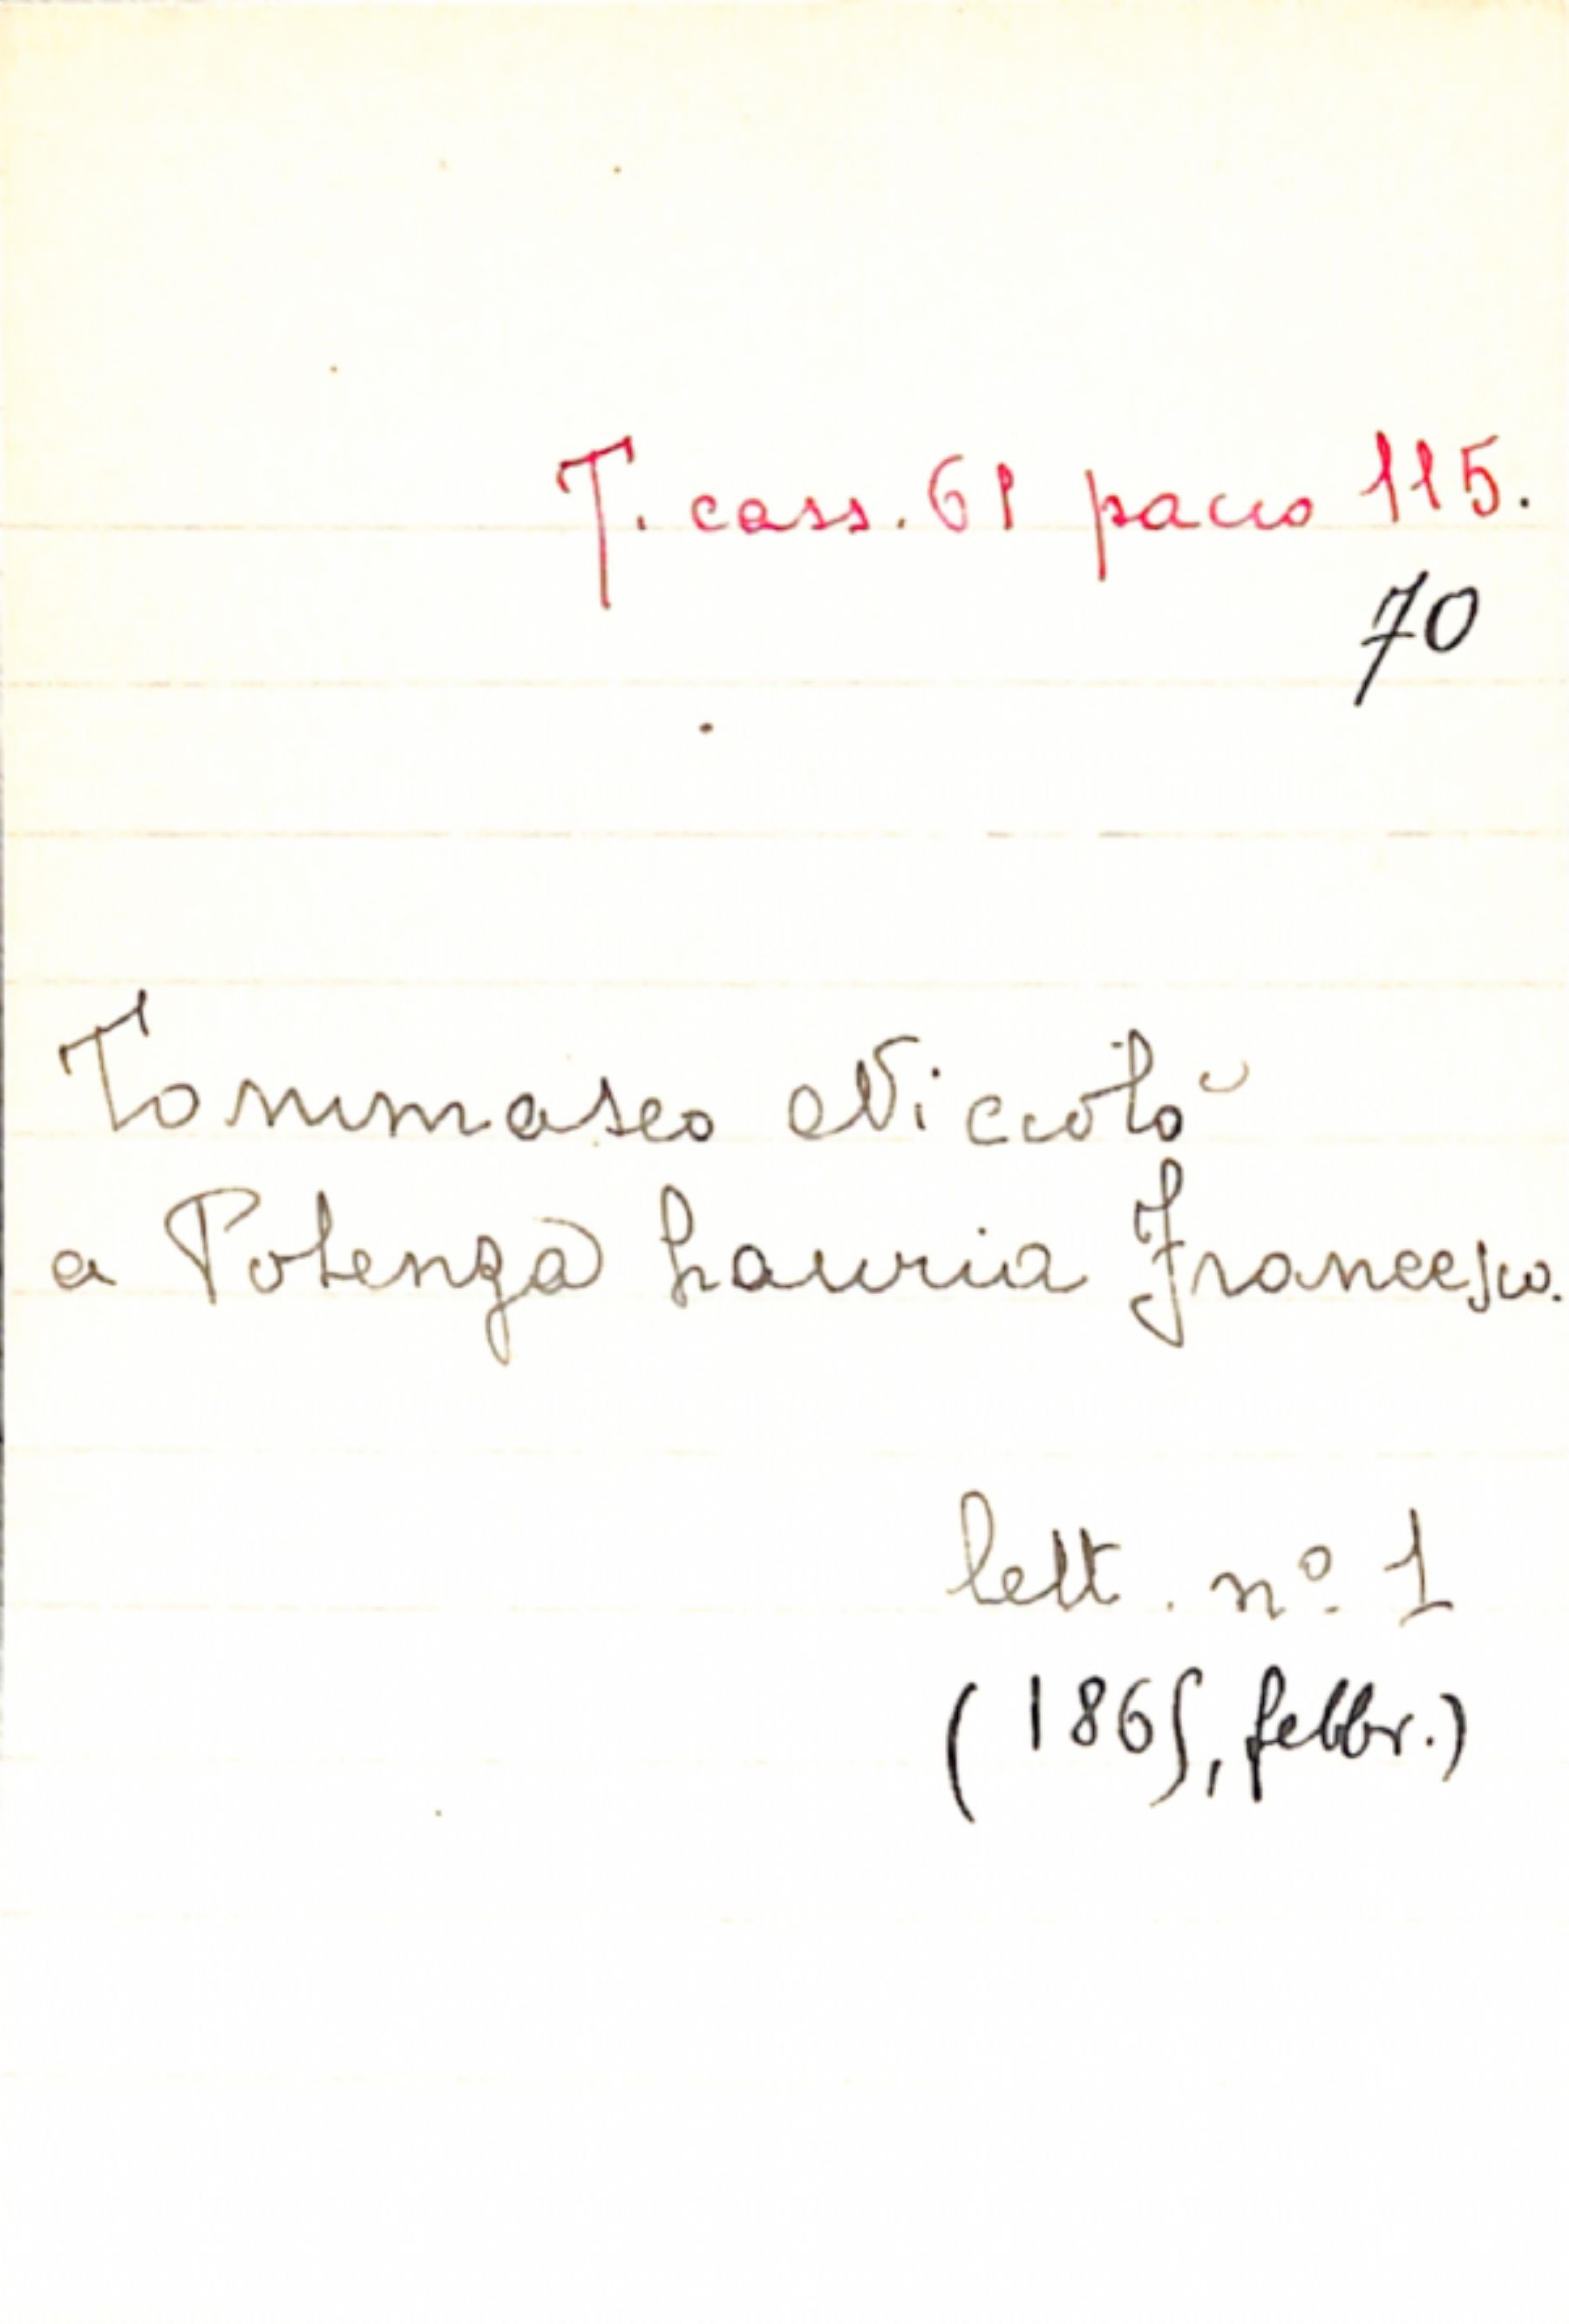 T. cass. 61 pacco 115.
70
Tommaseo Niccolò
a Potenza Lauria Francesco.
lett. nº 1
(1865, febbr.)